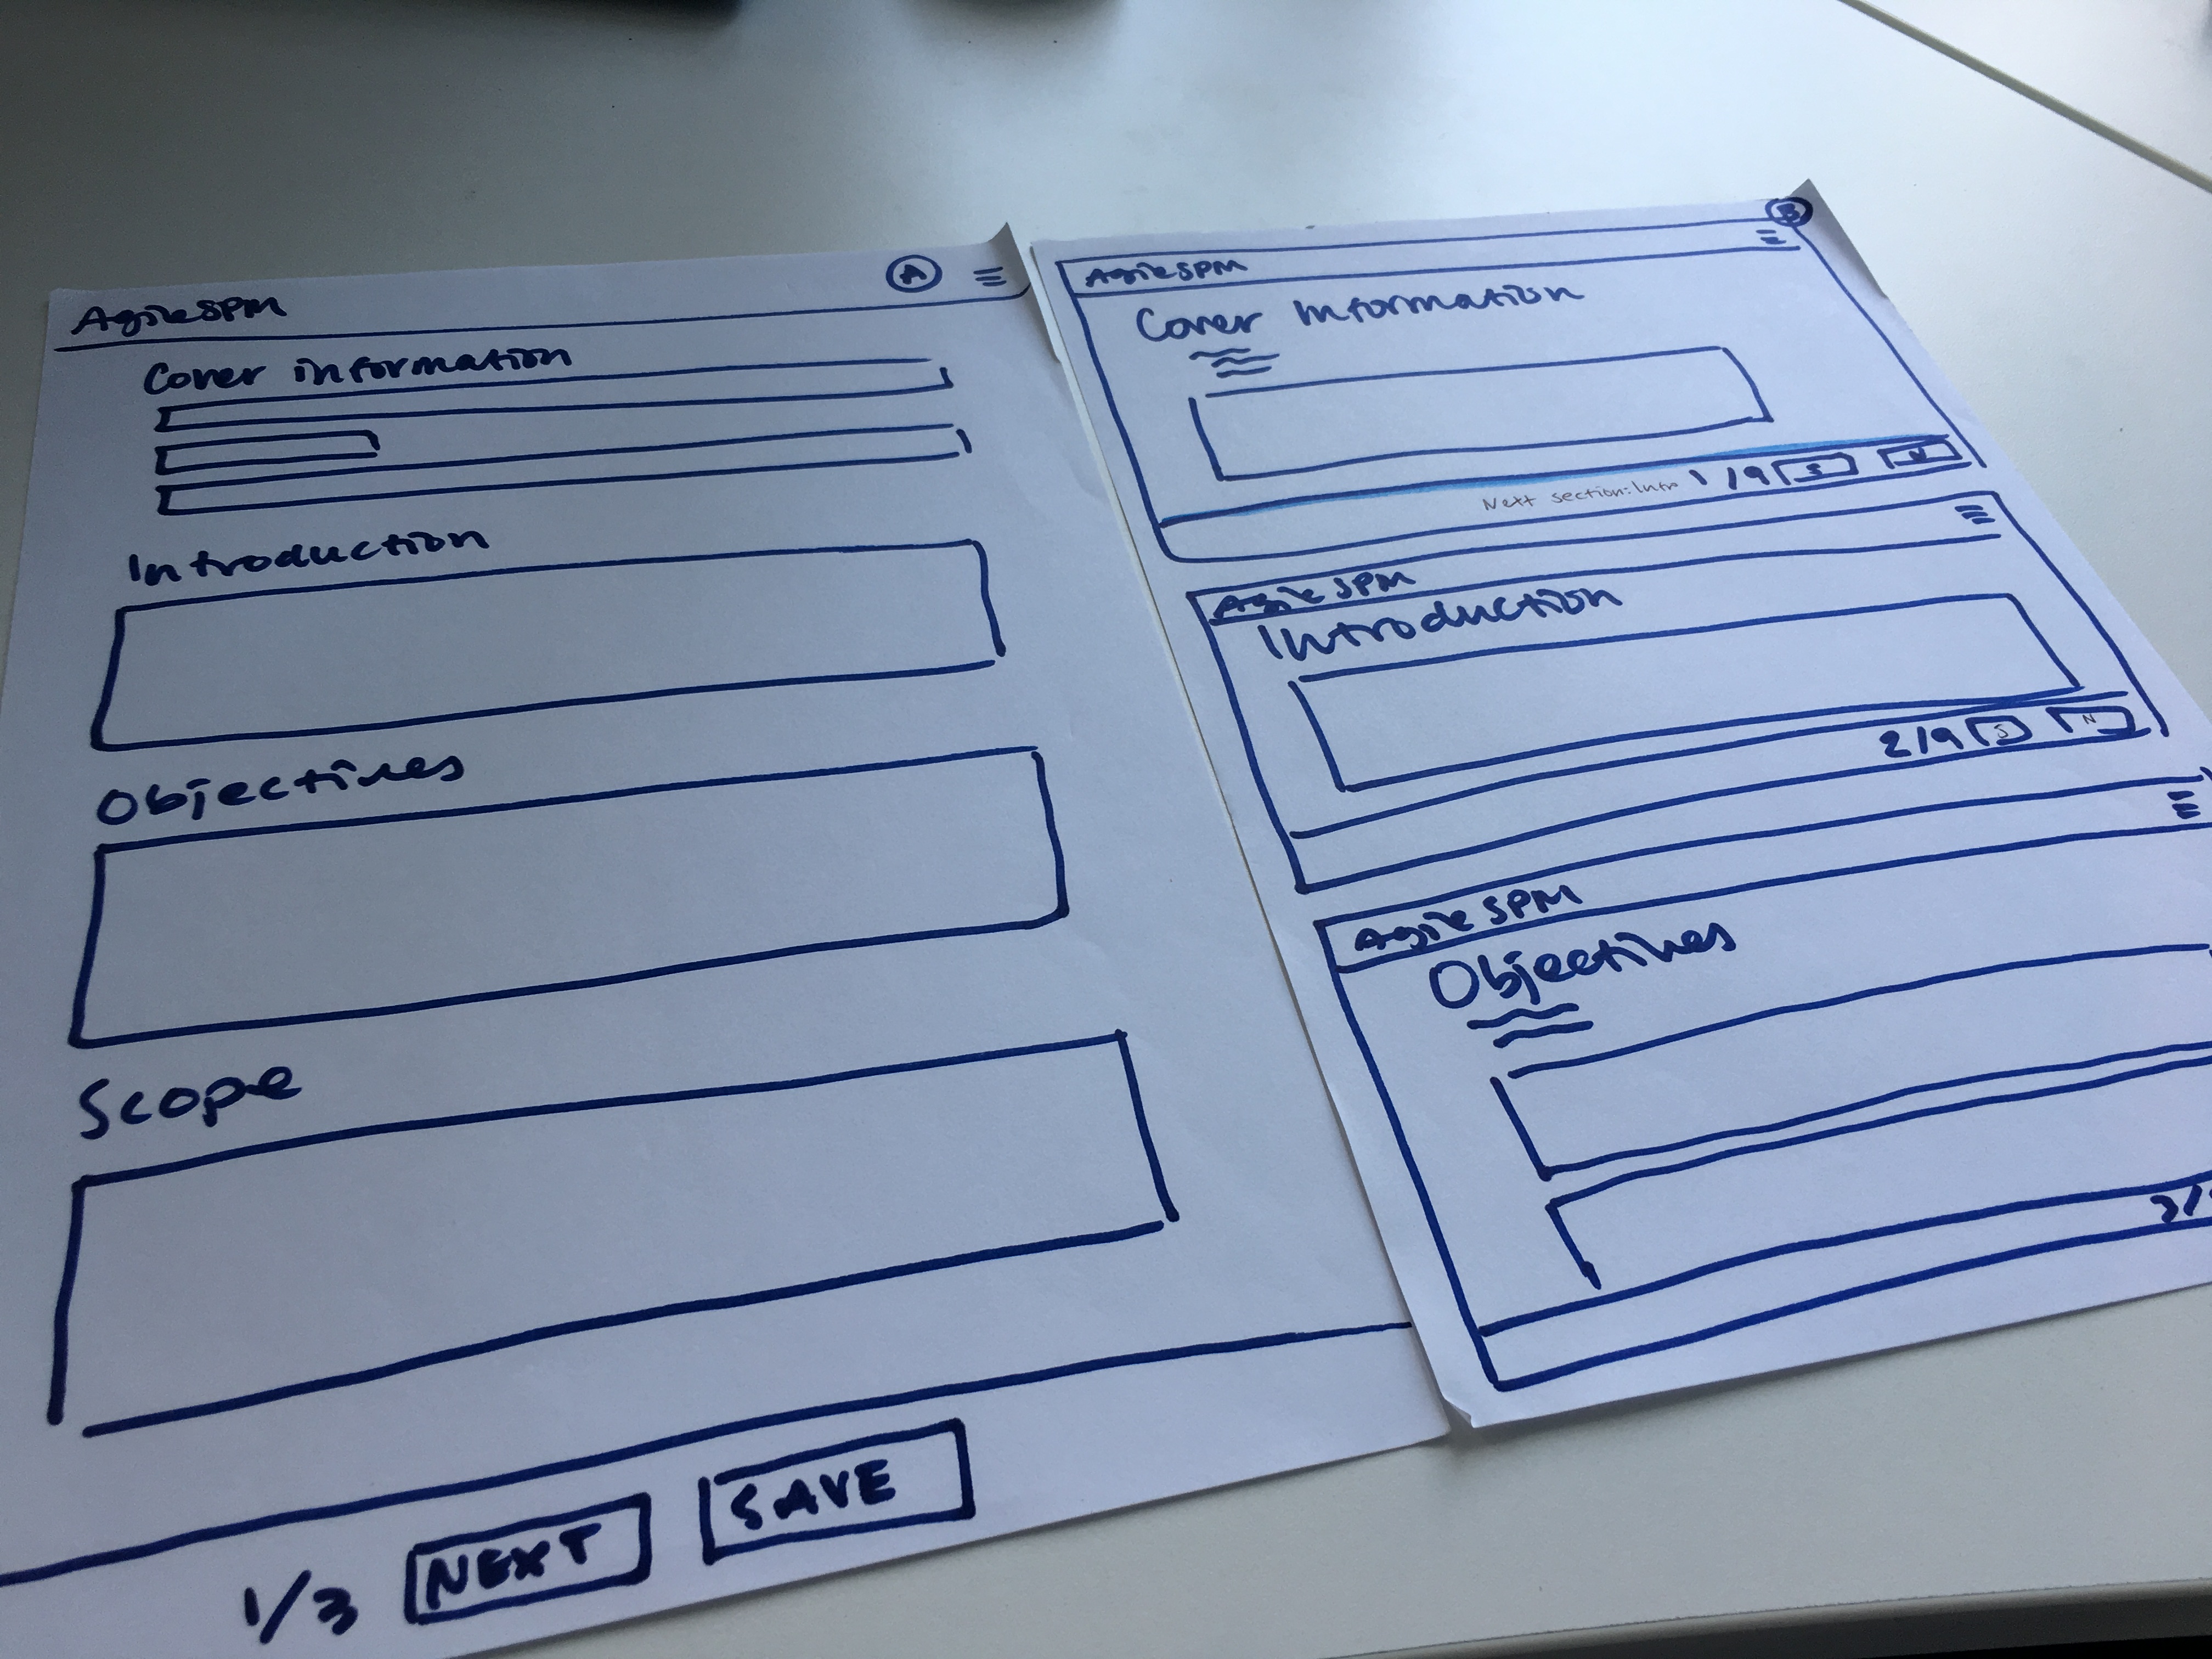 AgileSPM
A
Cover information
Introduction
Objectives
Scope
1/3 NEXT SAVE
B
AgileSPM
Cover Information
Next section: Intro 1/9 S N
AgileSPM
Introduction
2/9 S N
AgileSPM
Objectives
3/